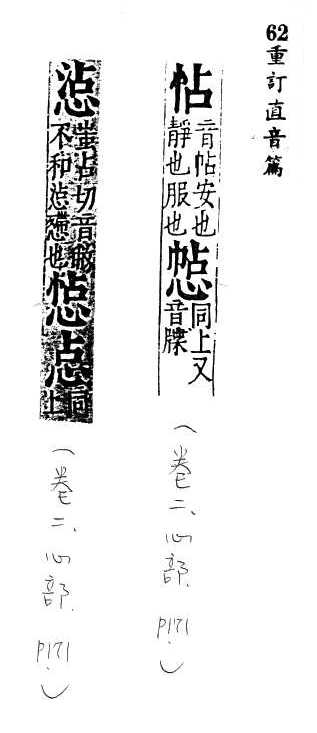 62重訂直音篇
怗
音帖安也
靜也服也
同上又
音牒
（卷二、心部. P171.）
惉
蚩占切音
不和惉懘也
同
上
（卷二、心部. P171.）